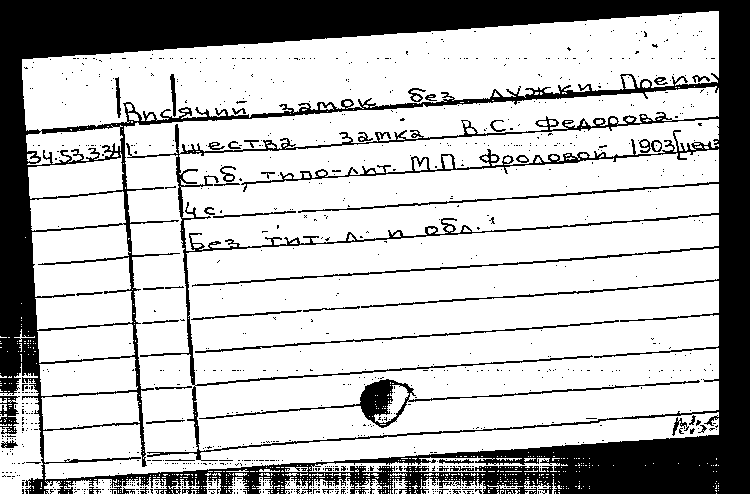 Висячий замок без дужки. Преиму
34.53.334 г. щества замка В.С. Федорова.
Спб., типо-лит. М.П. Фроловой, 1903[ценз
4 с.
Без тит. л. и обл.